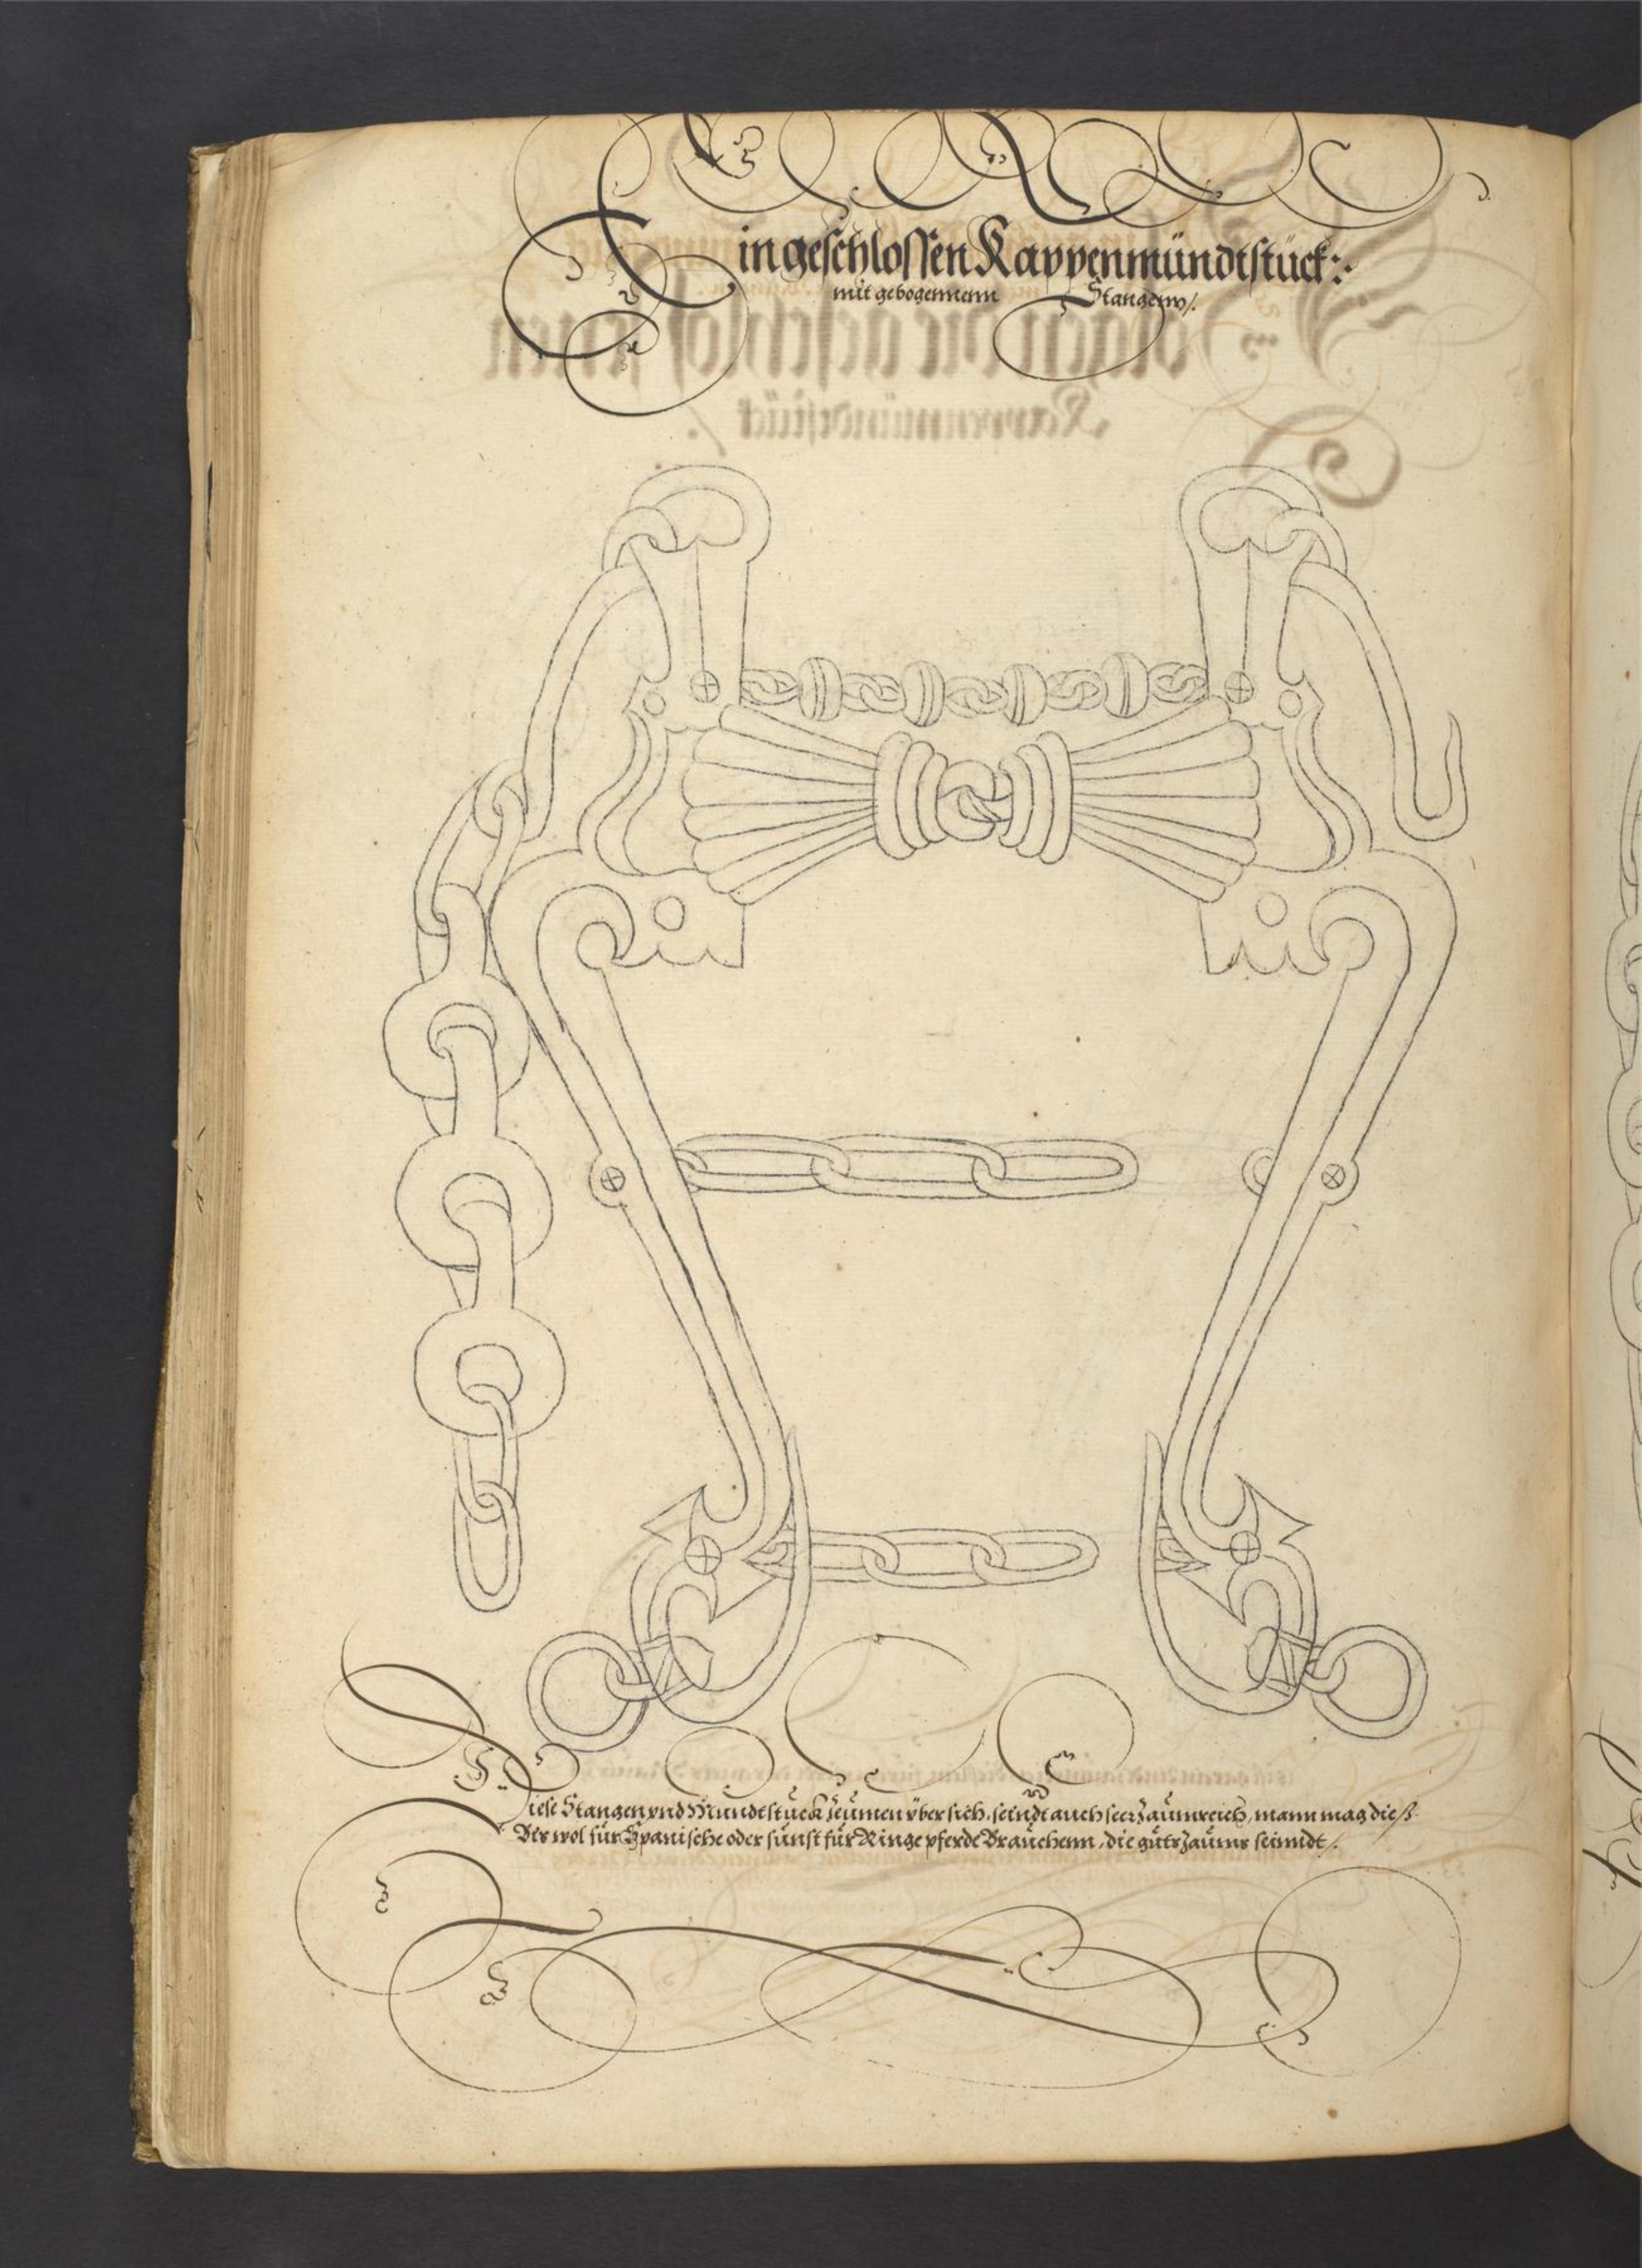 Ein geschlossen Kappenmündtstück:
mit gebogennenn Stangenn/.
Diese Stangen vnd Mundtstück Zeümen vber sich, seindt auch seer Zaümreich, mann mag dieß
Bis wol für Spanische oder sünst für Ringe pferde Braüchenn, die güts Zaüms seinndt/.